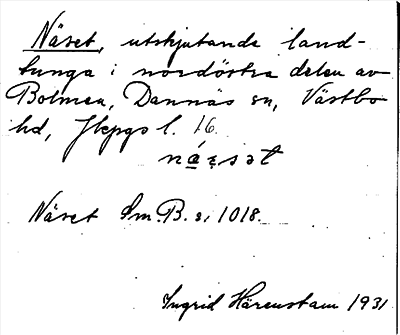 Näset, utskjutande land-
tunga i nordöstra delen av
Bolmen, Dannäs sn, Västbo
hd, Jkpgs l. 16.
náːsət
Näset Sm. B. s. 1018.
Ingrid Härenstam 1931